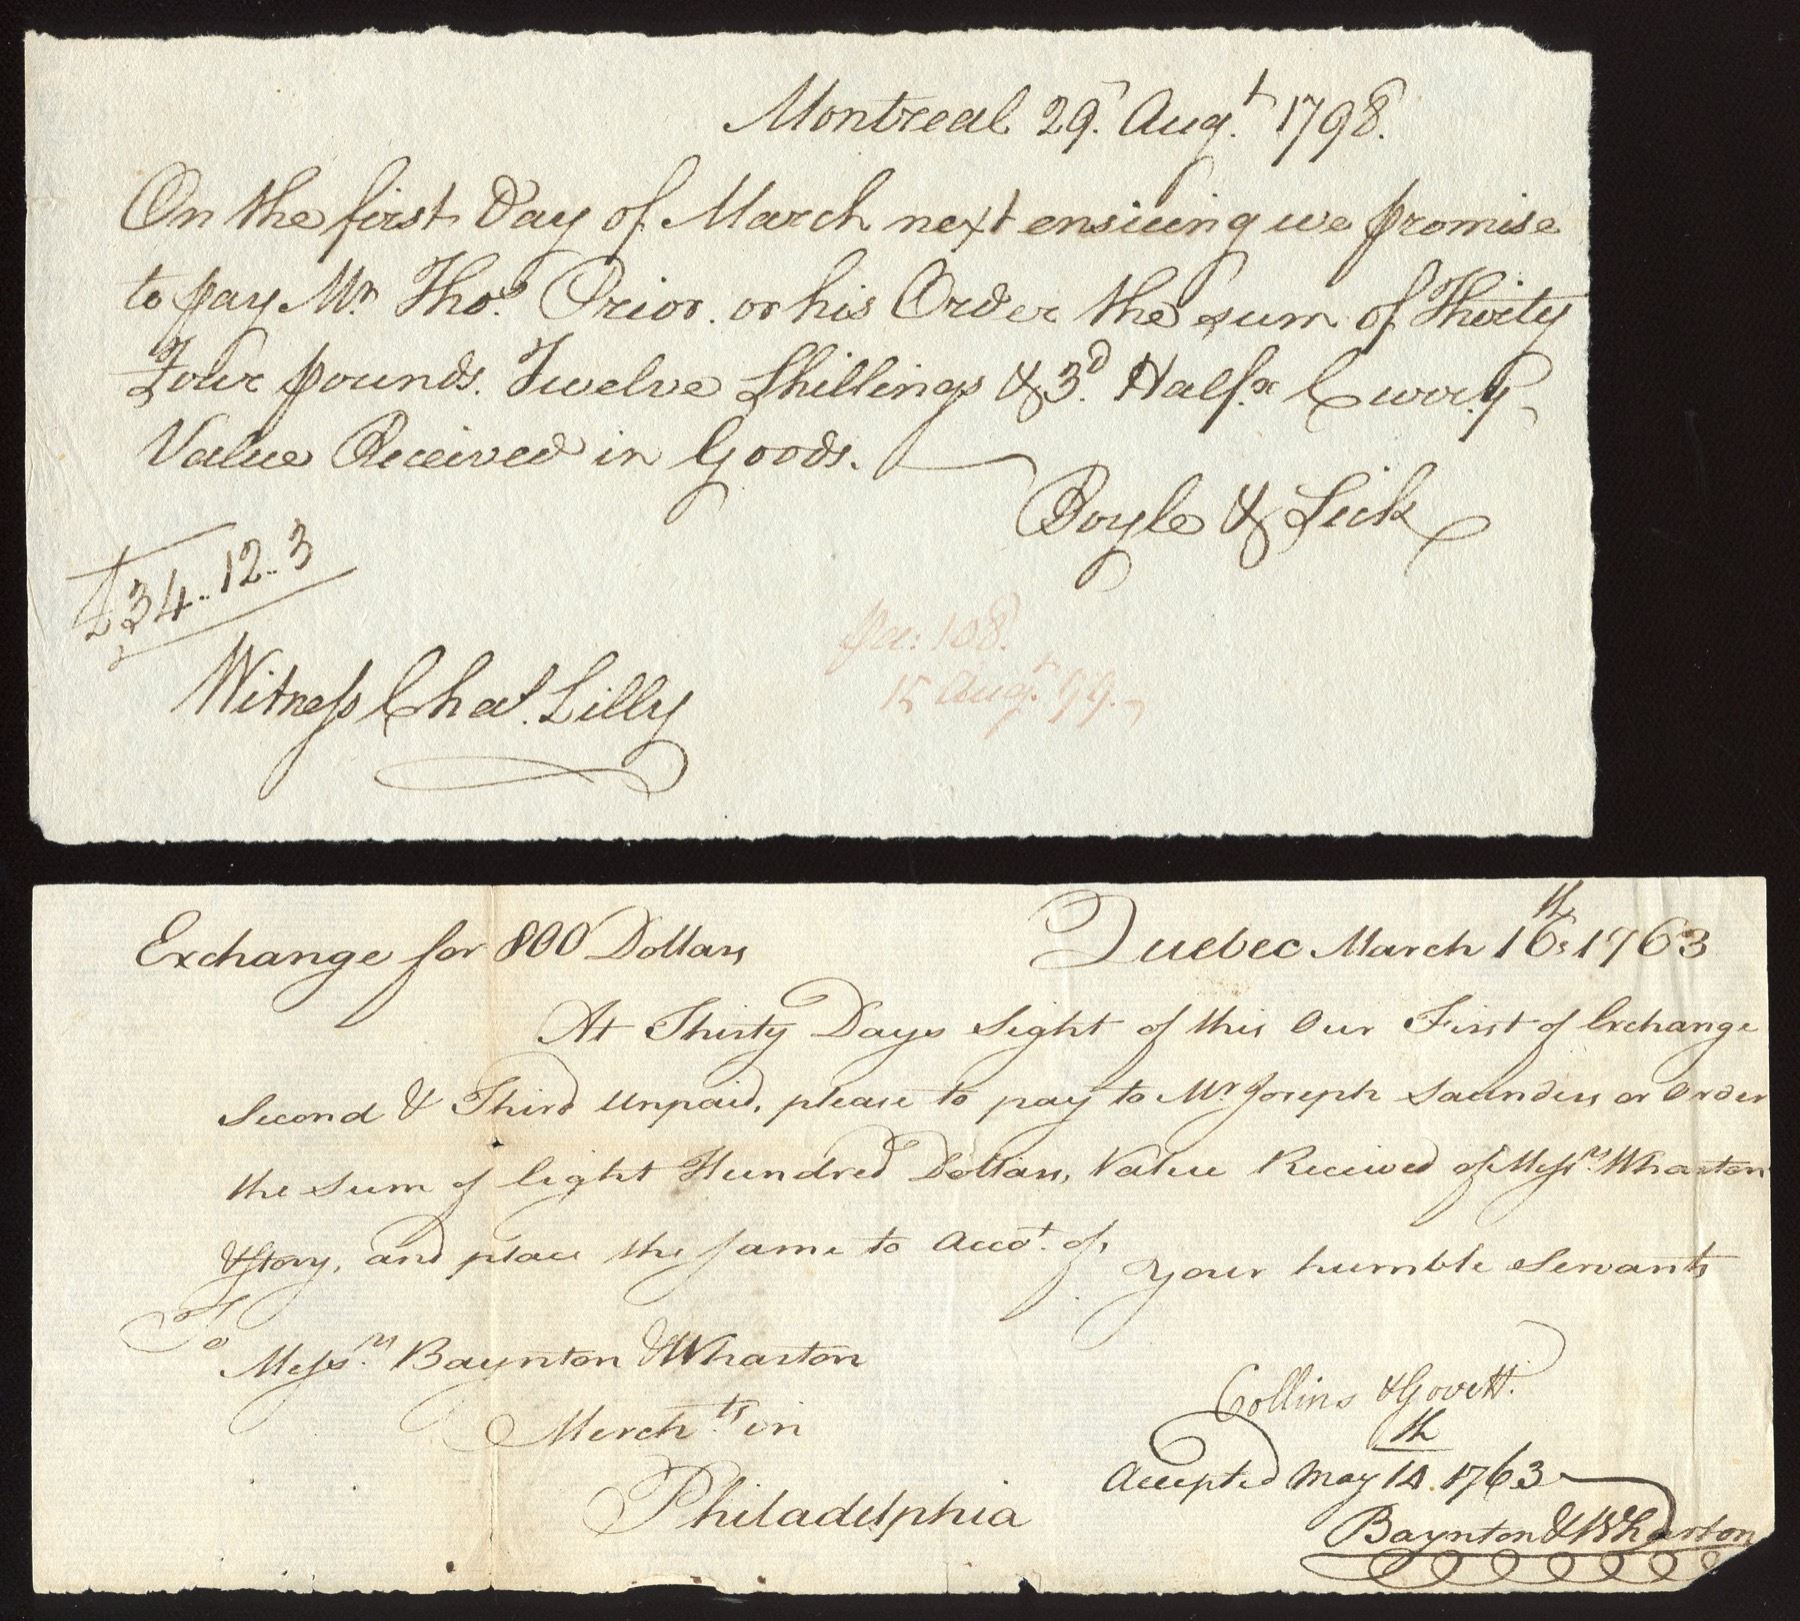 Montreal 29. Augt. 1798.
On the first Day of March next ensuing we promise
to pay Mr. Thos. Prior. or his Order the sum of Thirty
Four pounds. Twelve Shillings & 3d. Halfx Curr.y
Value Received in Goods.
Boyle & Lick
£34..12..3
Witness Chas. Lilly
108.
15 Augt. 99.
Exchange for 800 Dollars
Quebec March 16th. 1763
At Thirty Days Sight of this Our First of Exchange
Second & Third Unpaid, please to pay to Mr Joseph Saunders or Order
the Sum of Eight Hundred Dollars, Value Received of Messrs. Wharton
& Story, and place the same to Accot. of,
Your humble Servants
To
Messrs. Baynton & Wharton
Merchts. in
Philadelphia
Collins & Govett.
Accepted May 14th. 1763
Baynton & Wharton